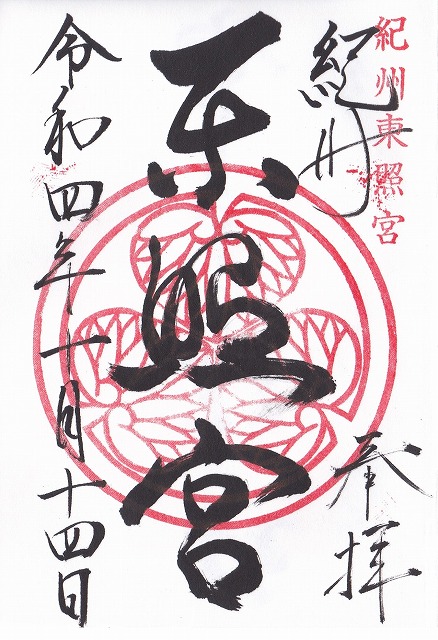 紀州東照宮
紀州
奉拝
東照宮
令和四年十月十四日